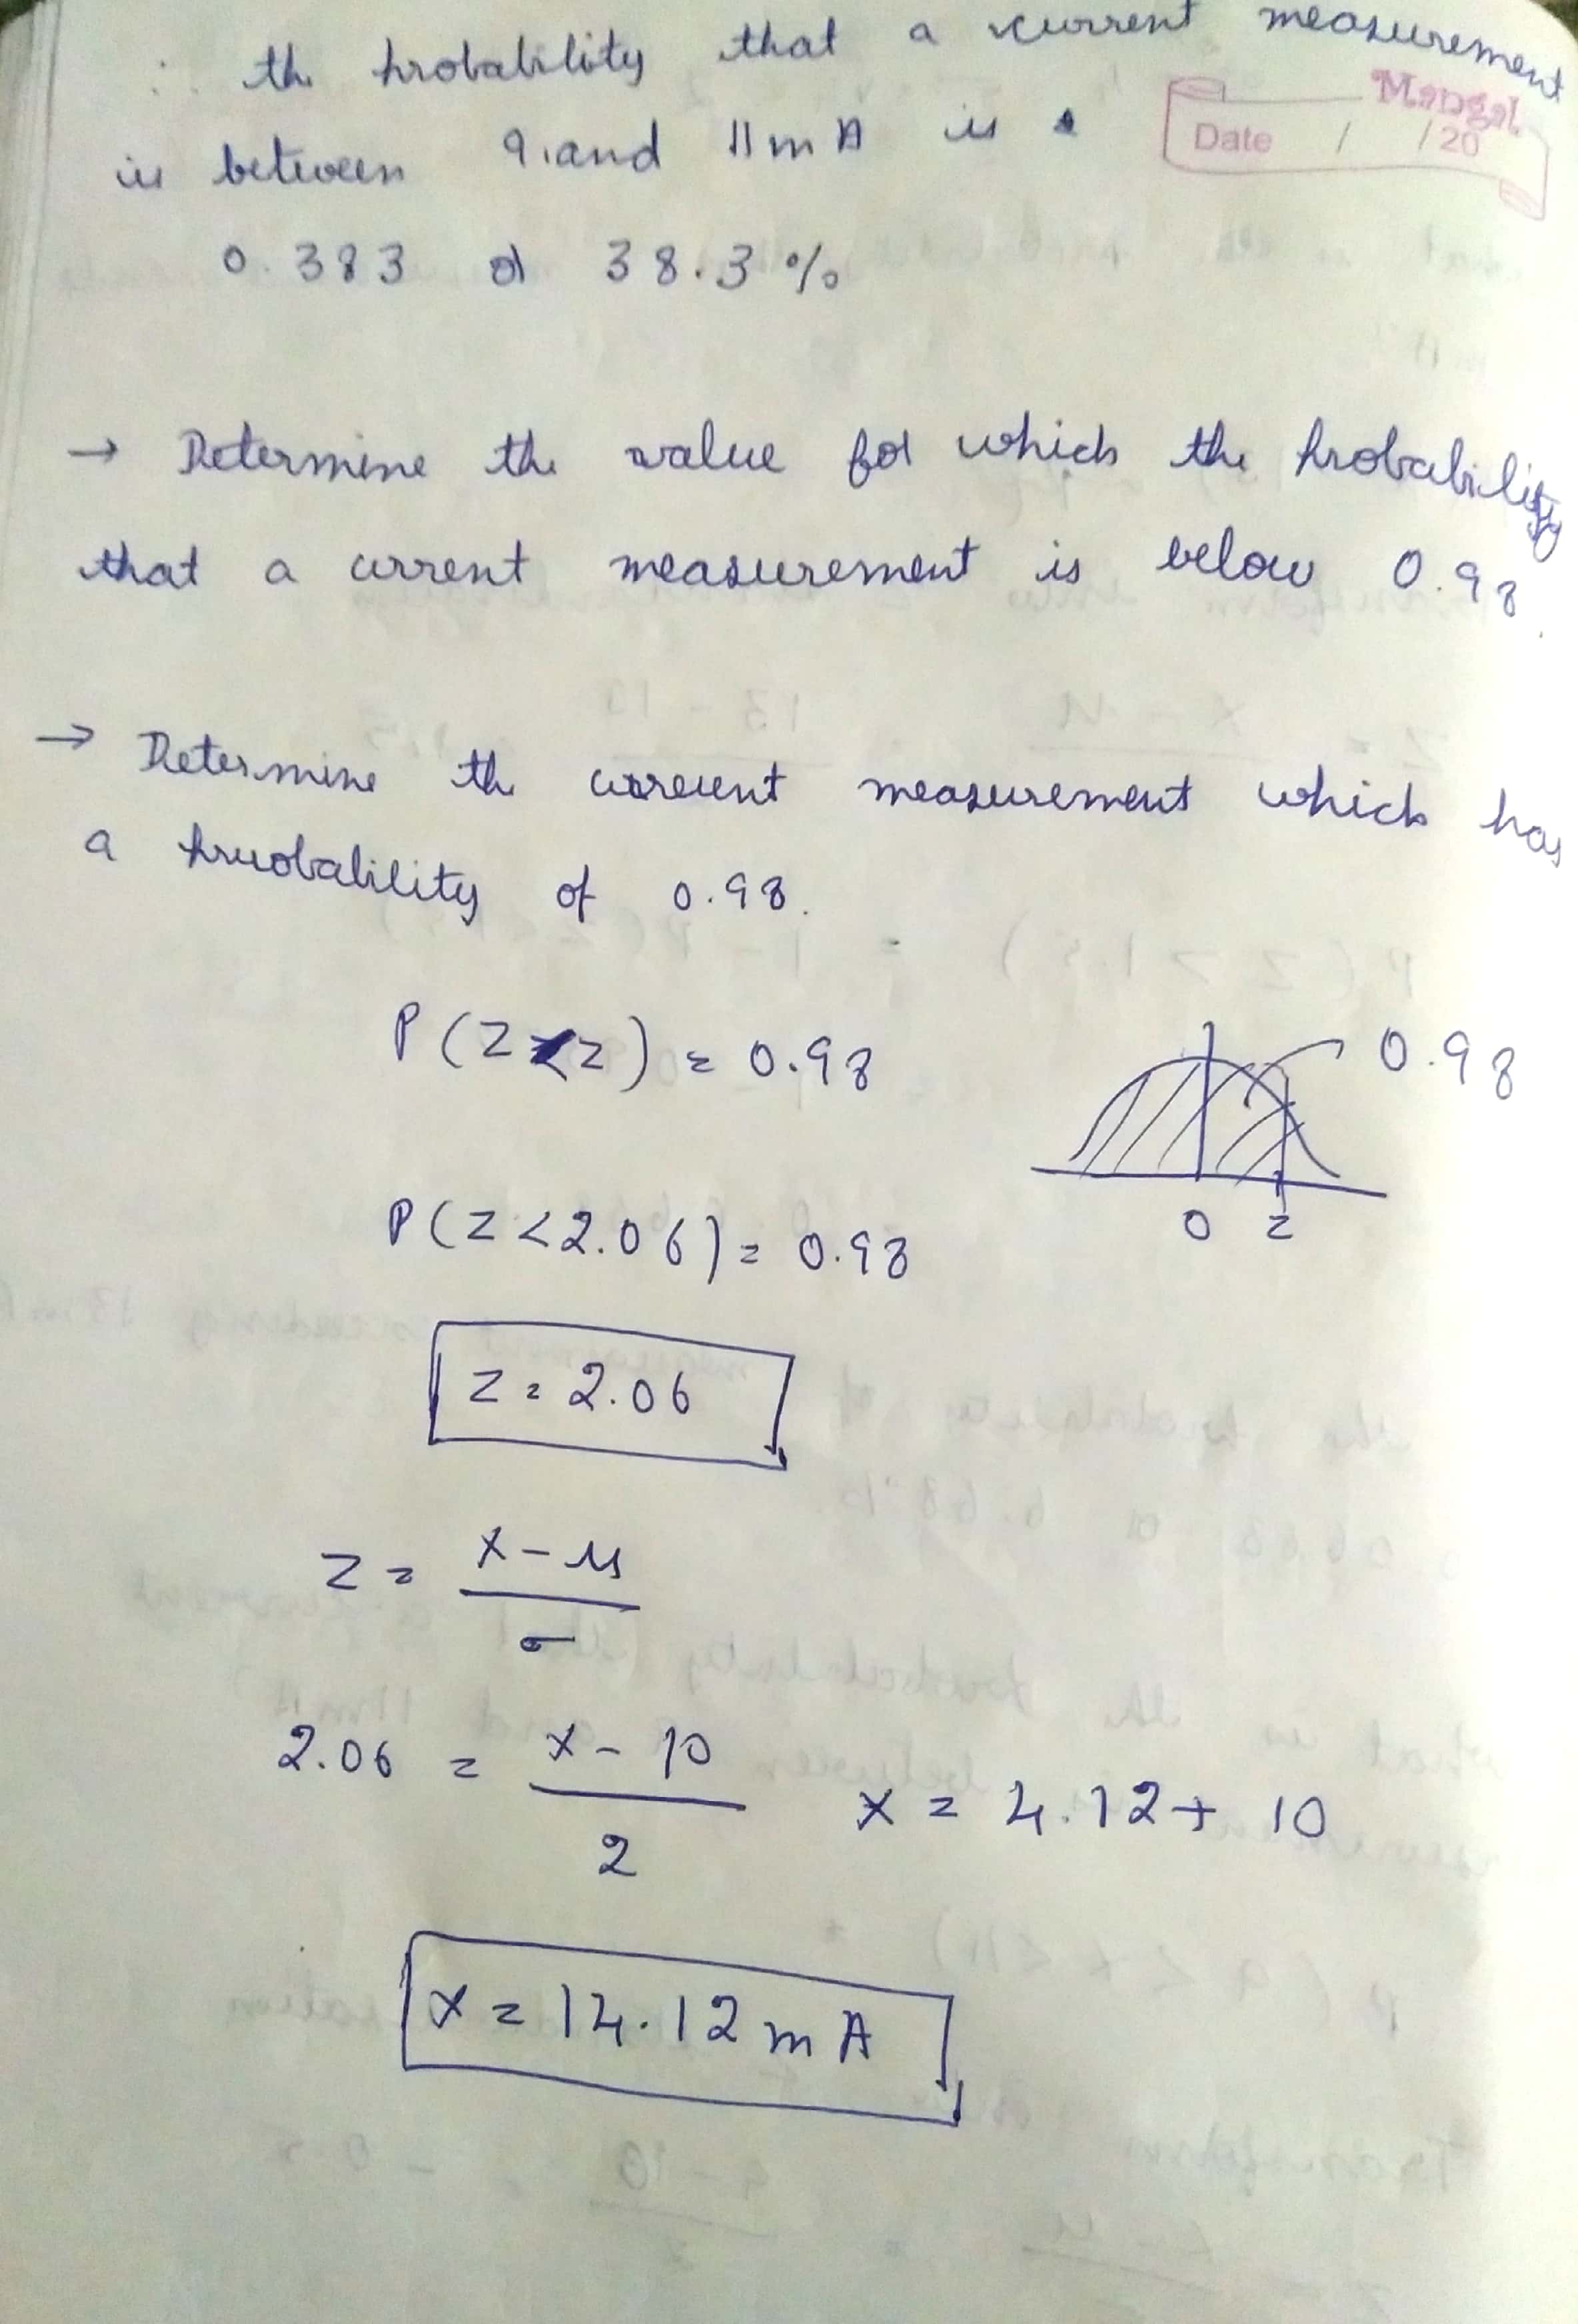 ∴ the probability that a current measurement
Mangal
Date / /20
is between 9 and 11 mA is
0.383 or 38.3 %
→ Determine the value for which the probability
that a current measurement is below 0.98.
→ Determine the current measurement which has
a probability of 0.98.
P(Z < z) = 0.98
0.98
0 z
P(Z < 2.06) = 0.98
z = 2.06
z = x - μ / σ
2.06 = x - 10 / 2 x = 4.12 + 10
x = 14.12 mA